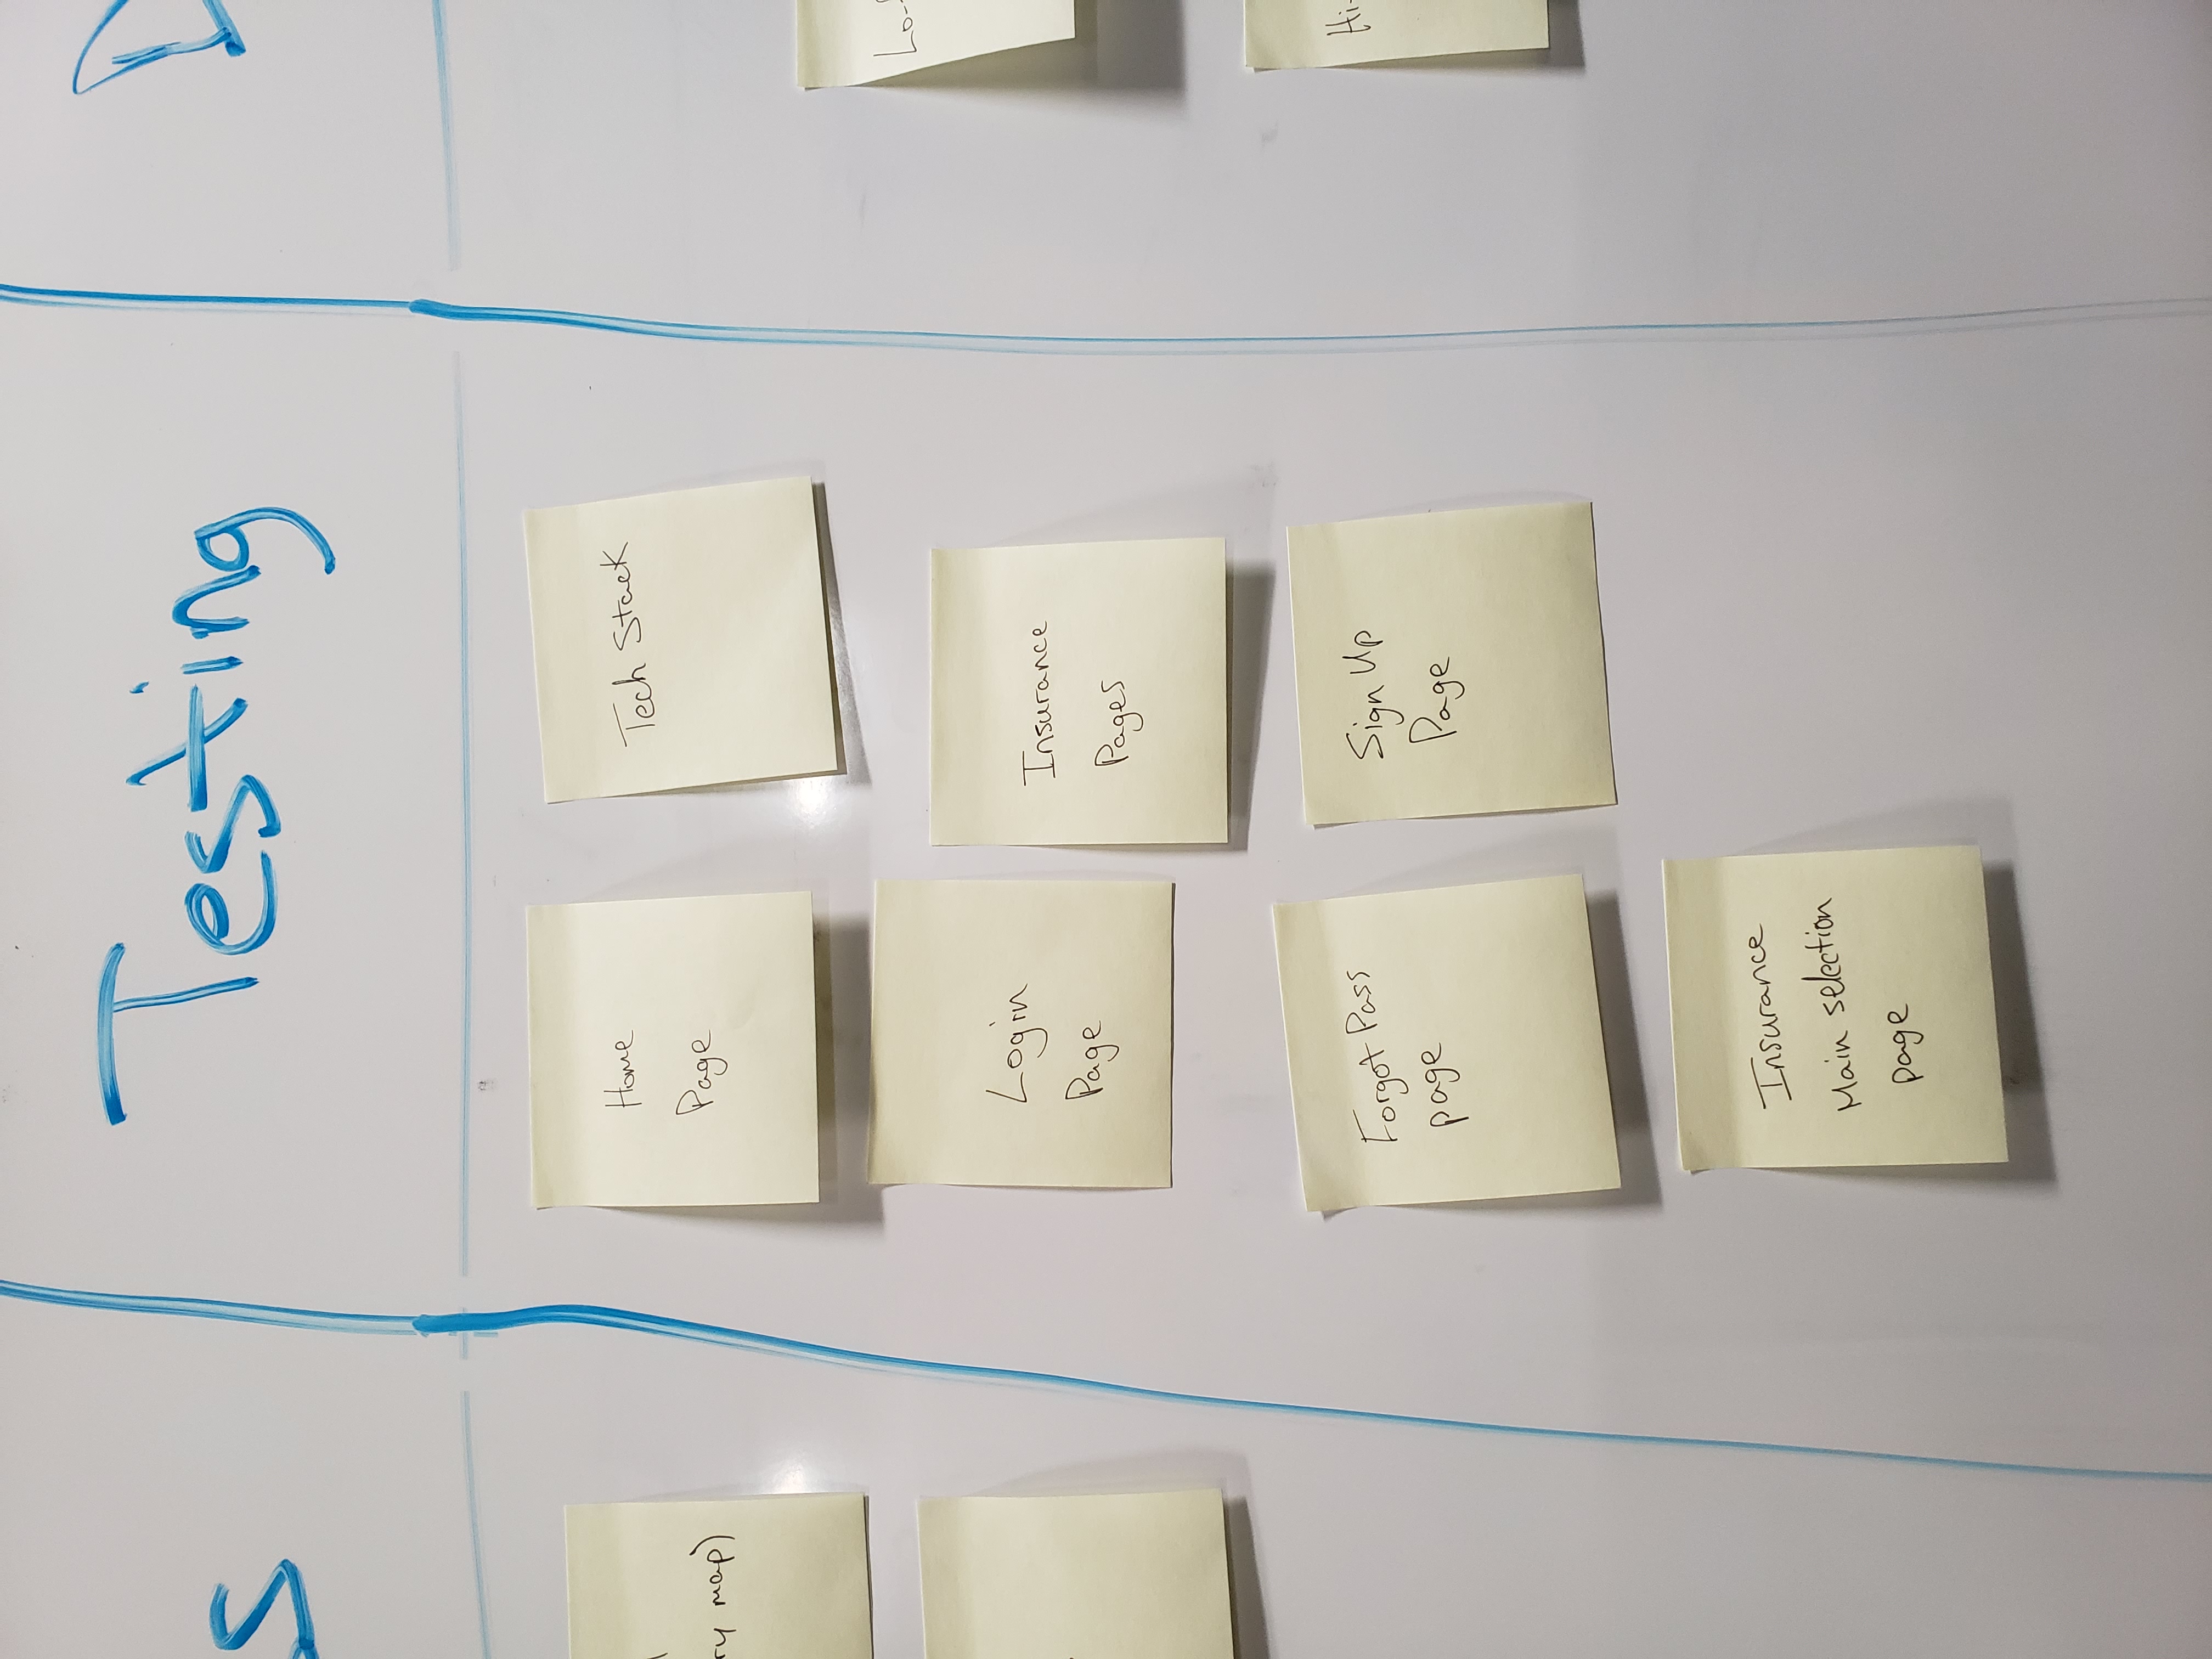 Testing
Home
Page
Tech Stack
Login
Page
Insurance
Pages
Forgot Pass
page
Sign Up
Page
Insurance
Main selection
page
map)